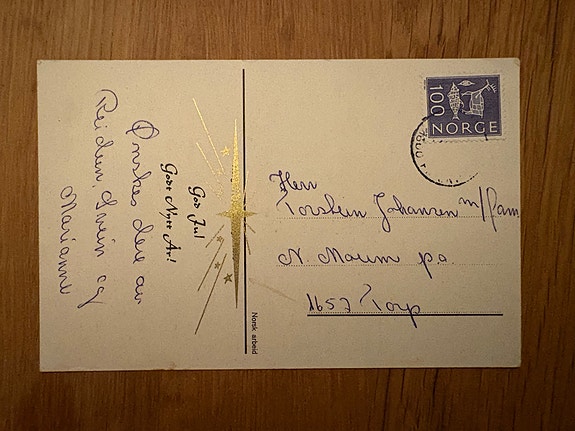 God Jul
Godt Nytt År!
Ønskes dere av
Reidun, Svein og
Marianne
Norsk arbeid
100
NORGE
Herr
Torstein Johansen m/fam
N. Moum p.o.
1657 Torp